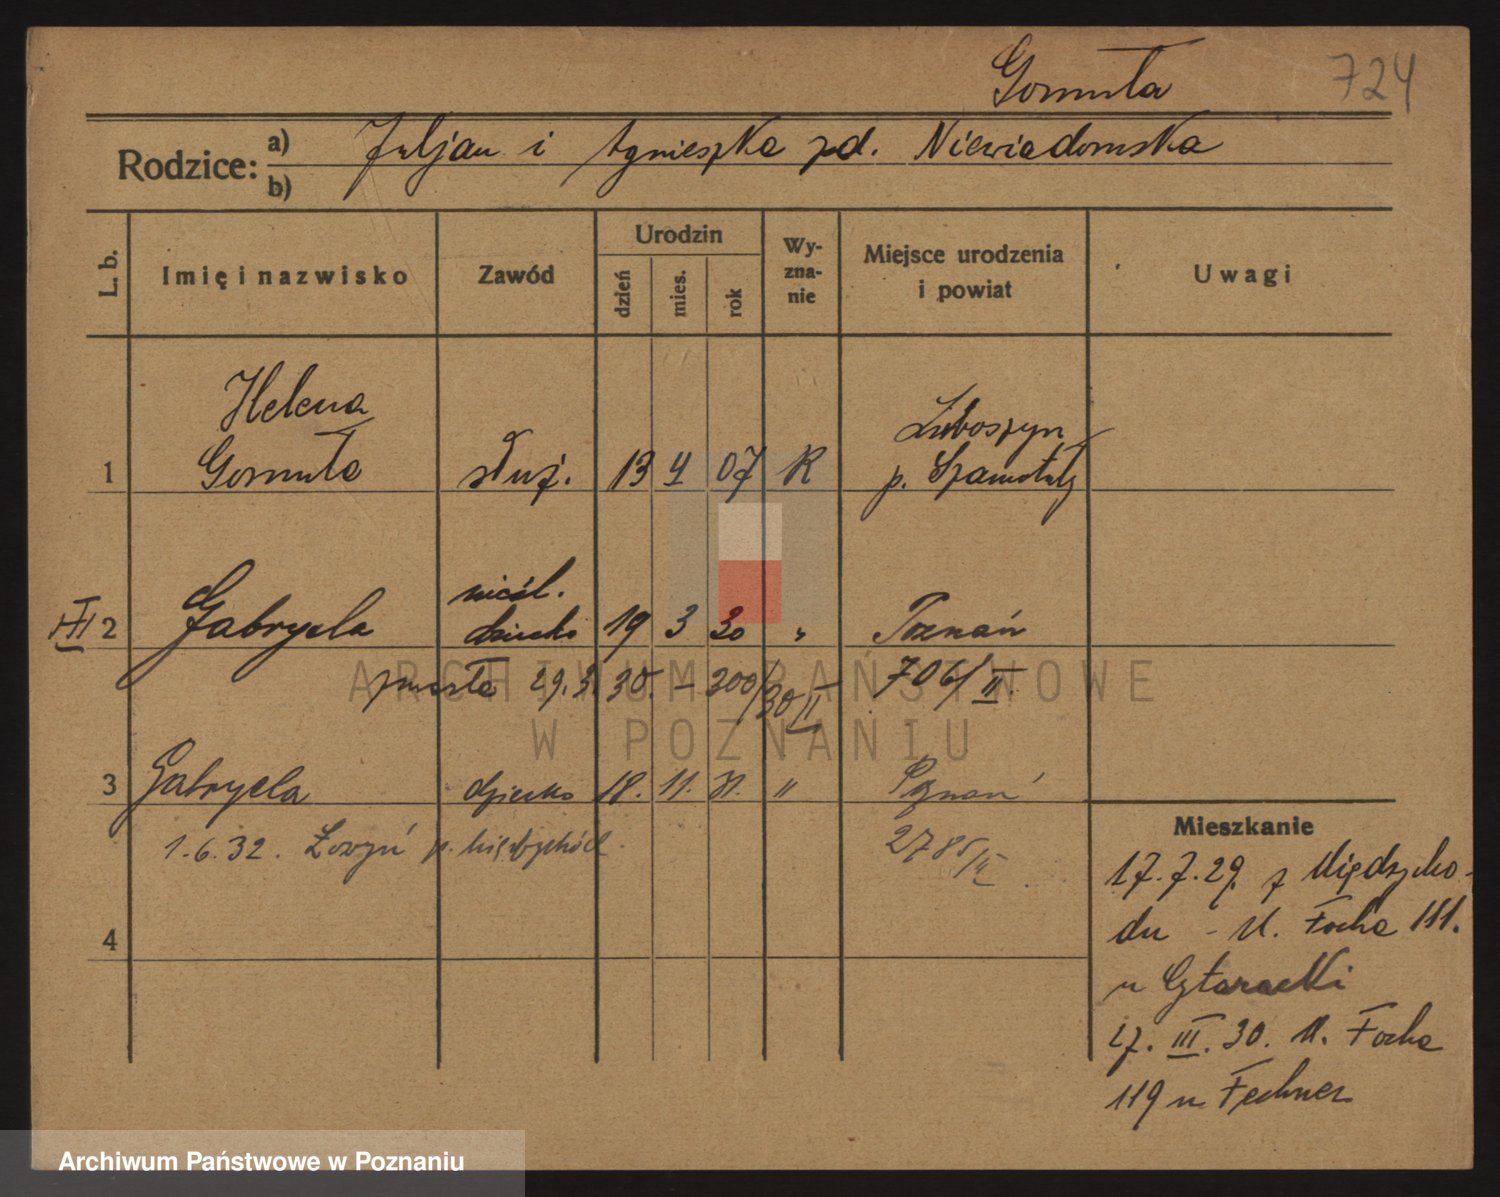 Gomuła 724
Rodzice: a) b) Juljan i Agnieszka zd. Niewiadomska
L. b. Imię i nazwisko Zawód Urodzin dzień mies. rok Wy-zna-nie Miejsce urodzenia i powiat Uwagi
1 Helena Gomuła służ. 13 4 07 R Luboszyn p. Szamotuły
III 2 Gabryela nieśl. dziecko 19 3 30 " Poznań
zmarła 29.3.30. – 300/30 II 706/II
3 Gabryela dziecko 18. 11. 31. " Poznań
1.6.32. p. Międzychód 2785/II
4
Mieszkanie
17.7.29. z Międzycho-
du - M. Focha 111.
u
27. III. 30. M. Focha
119 u Fechner
ARCHIWUM PAŃSTWOWE
W POZNANIU
Archiwum Państwowe w Poznaniu